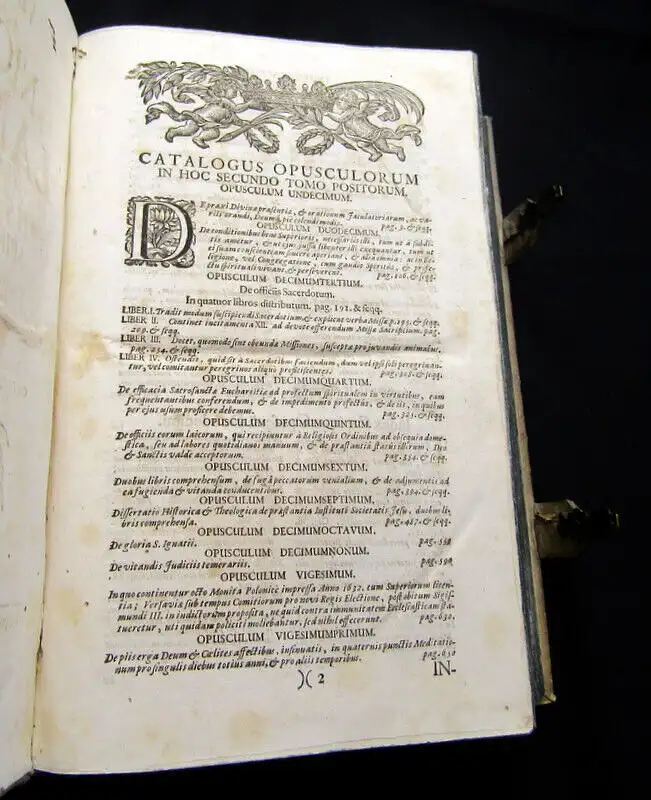 CATALOGUS OPUSCULORUM
IN HOC SECUNDO TOMO POSITORUM.
OPUSCULUM UNDECIMUM.
DE praxi Divinæ præsentiæ, & orationum Jaculatoriarum, ac va-
riis orandi, Deumq; pie colendi modis. pag. 3. & seqq.
OPUSCULUM DUODECIMUM.
De conditionibus boni Superioris, necessariis illi, tum ut à subdi-
tis ametur, & ut ejus jussa libenter illi exequantur, tum ut
ei suam conscientiam sincere aperiant, & alia omnia: ac in Re-
ligione, vel Congregatione, cum gaudio spiritûs, & profe-
ctu spirituali vivant, & perseverent. pag. 106. & seqq.
OPUSCULUM DECIMUMTERTIUM.
De officiis Sacerdotum.
In quatuor libros distributum. pag. 191. & seqq.
LIBER I. Tradit modum suscipiendi Sacerdotium, & explicat verba Missæ p. 193. & seqq.
LIBER II. Continet incitamenta XII. ad devote offerendum Missæ Sacrificium. pag.
209. & seqq.
LIBER III. Docet, quomodo sint obeundæ Missiones, susceptæ pro juvandis animabus.
pag. 254. & seqq.
LIBER IV. Ostendit, quid sit à Sacerdotibus faciendum, dum vel ipsi soli peregrinan-
tur, vel comitantur peregrinos aliquò proficiscentes. pag. 308. & seqq.
OPUSCULUM DECIMUMQUARTUM.
De efficacia Sacrosanctæ Eucharistiæ ad profectum spiritualem in virtutibus, eam
frequentantibus conferendum, & de impedimento profectûs, & de iis, in quibus
per ejus usum proficere debemus. pag. 325. & seqq.
OPUSCULUM DECIMUMQUINTUM.
De officiis eorum laicorum, qui recipiuntur à Religiosis Ordinibus ad obsequia dome-
stica, seu ad labores quotidianos manuum, & de præstantia status illorum, Deo
& Sanctis valde acceptorum. pag. 354. & seqq.
OPUSCULUM DECIMUMSEXTUM.
Duobus libris comprehensum, de fugâ peccatorum venialium, & de adjumentis ad
ea fugienda & vitanda conducentibus. pag. 394. & seqq.
OPUSCULUM DECIMUMSEPTIMUM.
Dissertatio Historica & Theologica de præstantia Instituti Societatis Jesu, duobus li-
bris comprehensa. pag. 467. & seqq.
OPUSCULUM DECIMUMOCTAVUM.
De gloria S. Ignatii. pag.
OPUSCULUM DECIMUMNONUM.
De vitandis Judiciis temerariis. pag.
OPUSCULUM VIGESIMUM.
In quo continentur octo Monita Polonicè impressa Anno 1632. cum Superiorum licen-
tia; Versaviæ sub tempus Comitiorum pro novi Regis Electione, post obitum Sigis-
mundi III. in indictorum proposita, ne quid contra immunitatem Ecclesiasticam sta-
tueretur, uti quidam politici moliebantur, sed nihil effecerunt. pag. 630.
OPUSCULUM VIGESIMUMPRIMUM.
De piis erga Deum & Cælites affectibus, insinuatis, in quaternis punctis Meditatio-
num pro singulis diebus totius anni, & pro aliis temporibus. pag. 650
)( 2 IN-